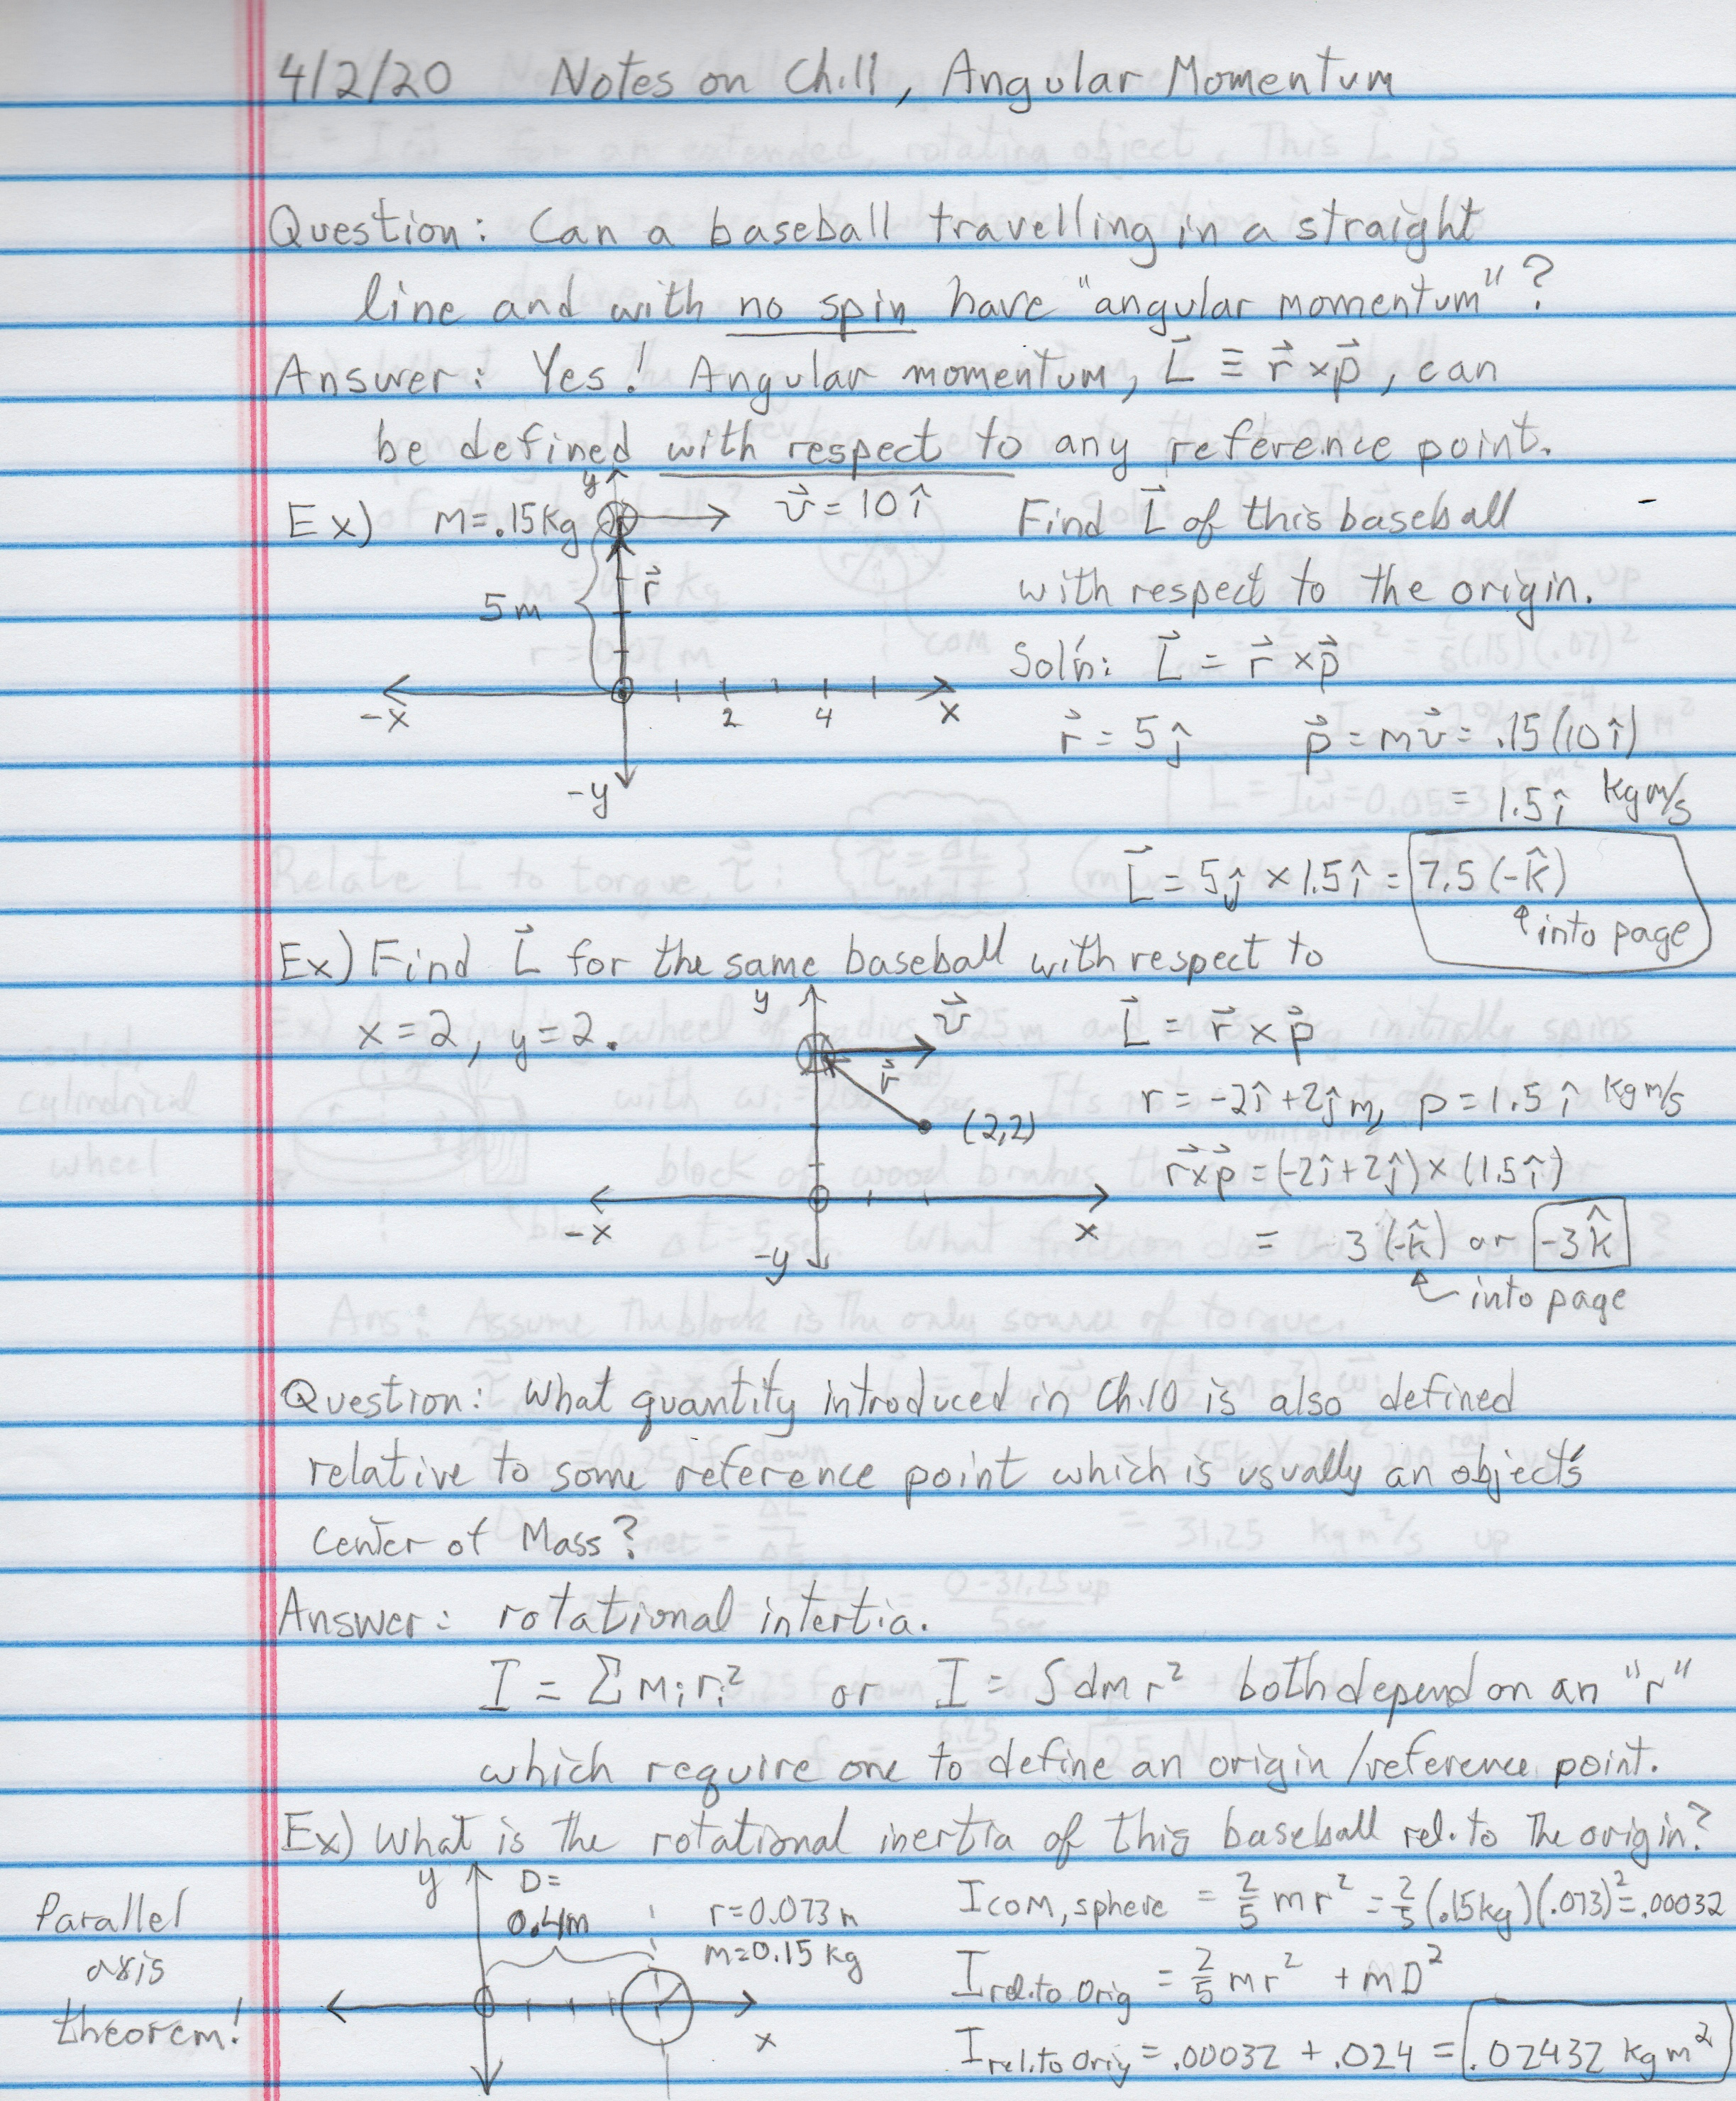 4/2/20 Notes on Ch.11, Angular Momentum
Question: Can a baseball travelling in a straight
line and with no spin have "angular momentum"?
Answer: Yes! Angular momentum, L⃗ ≡ r⃗ × p⃗, can
be defined with respect to any reference point.
Ex) m=.15kg y v⃗ = 10 î Find L⃗ of this baseball
5m r⃗ with respect to the origin.
Sol'n: L⃗ = r⃗ × p⃗
-x 2 4 x
r⃗ = 5 ĵ p⃗ = mv⃗ = .15(10 î)
-y = 1.5 î kg m/s
L⃗ = 5ĵ × 1.5 î = 7.5 (-k̂)
↑ into page
Ex) Find L⃗ for the same baseball with respect to
x = 2, y = 2. y v⃗ L⃗ = r⃗ × p⃗
r⃗ r = -2î + 2ĵ m, p = 1.5 î kg m/s
(2,2)
r⃗×p⃗ = (-2î + 2ĵ) × (1.5 î)
-x x
-y = 3 (-k̂) or -3 k̂
into page
Question: What quantity introduced in Ch.10 is also defined
relative to some reference point which is usually an object's
center of Mass?
Answer: rotational intertia.
I = Σ mᵢrᵢ² or I = ∫ dm r² both depend on an "r"
which require one to define an origin/reference point.
Ex) What is the rotational inertia of this baseball rel. to the origin?
Parallel axis theorem!
y D= 0.4m r=0.073 m
m=0.15 kg
x
I com, sphere = 2/5 mr² = 2/5 (.15kg)(.073)² = .00032
I rel. to Orig = 2/5 mr² + mD²
I rel. to Orig = .00032 + .024 = .02432 kg m²